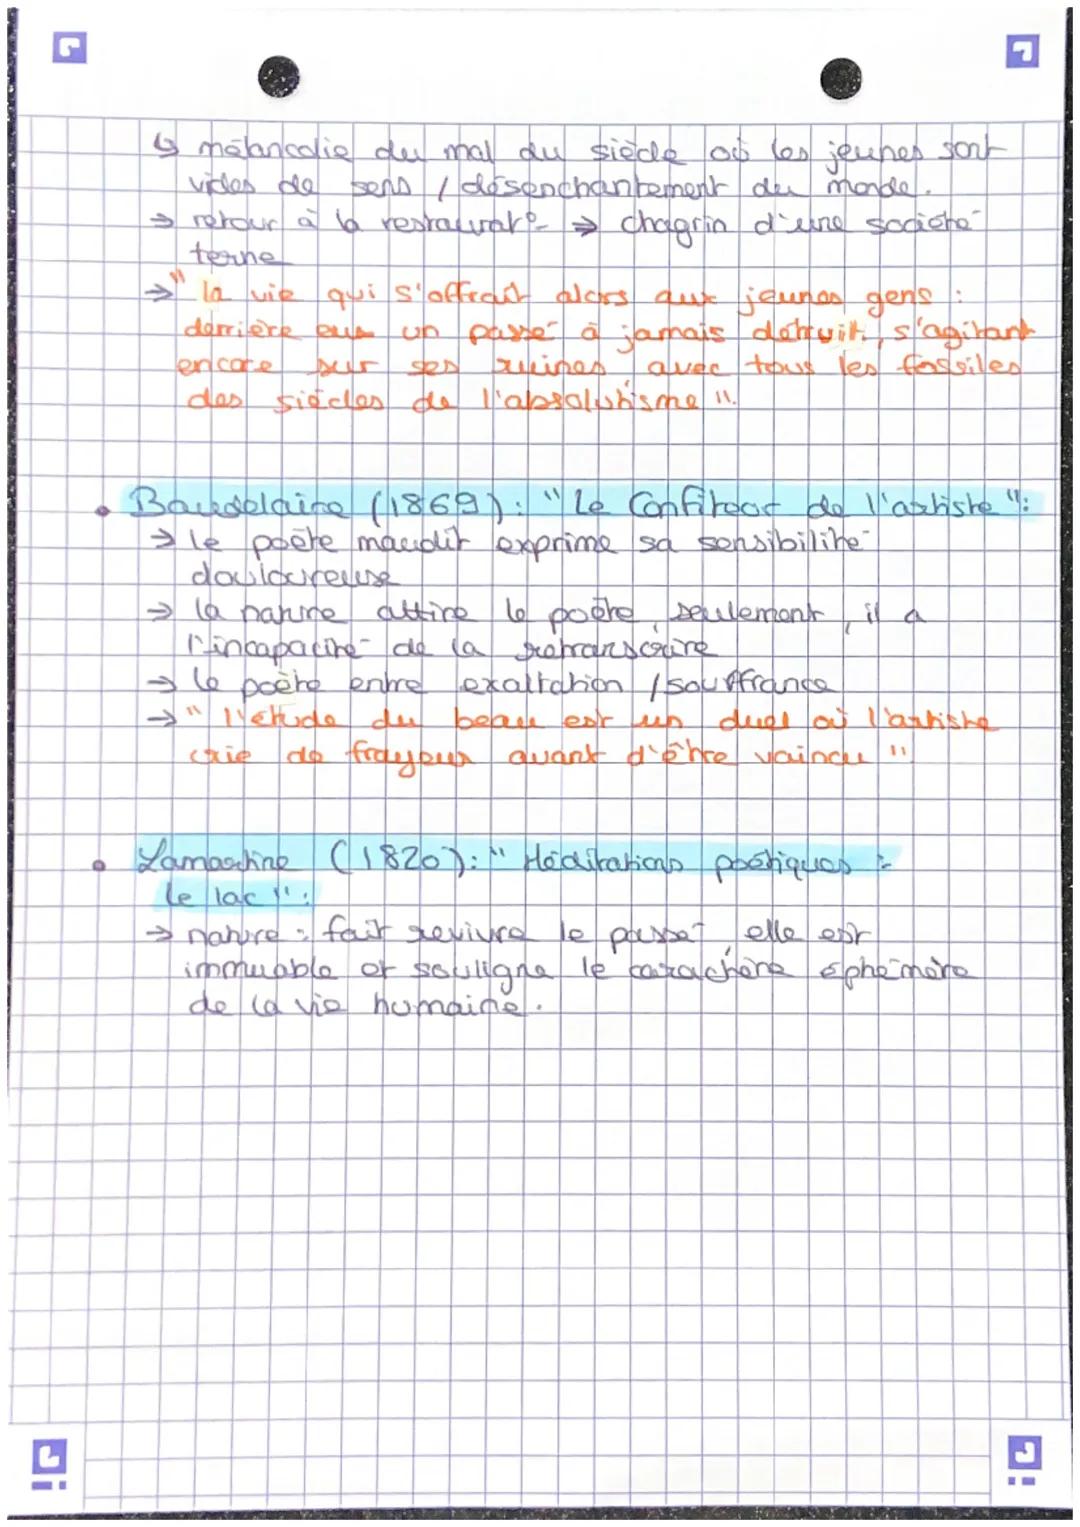 ↳ mélancolie du mal du siècle où les jeunes sont
vides de sens / désenchantement du monde.
→ retour à la restaurat° → chagrin d'une société
terne
→ "la vie qui s'offrait alors aux jeunes gens :
derrière eux un passé à jamais détruit, s'agitant
encore sur ses ruines, avec tous les fossiles
des siècles de l'absolutisme".
• Baudelaire (1869) : "Le Confiteor de l'artiste" :
→ le poète maudit exprime sa sensibilité
douloureuse
→ la nature attire le poète, seulement, il a
l'incapacité de la retranscrire
→ le poète entre exaltation / souffrance
→ "l'étude du beau est un duel où l'artiste
crie de frayeur avant d'être vaincu"
• Lamartine (1820) : "Méditations poétiques :
le lac" :
→ nature : fait revivre le passé, elle est
immuable et souligne le caractère éphémère
de la vie humaine.